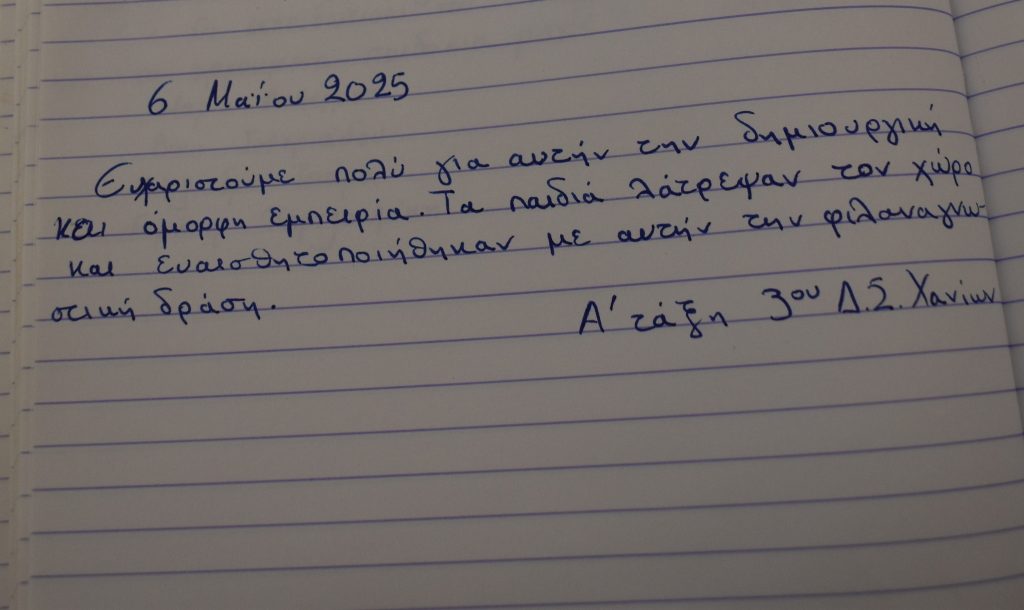 6 Μαΐου 2025
Ευχαριστούμε πολύ για αυτήν την δημιουργική
και όμορφη εμπειρία. Τα παιδιά λάτρεψαν τον χώρο
και ευαισθητοποιήθηκαν με αυτήν την φιλαναγνω-
στική δράση.
Α' τάξη 3ου Δ.Σ. Χανίων